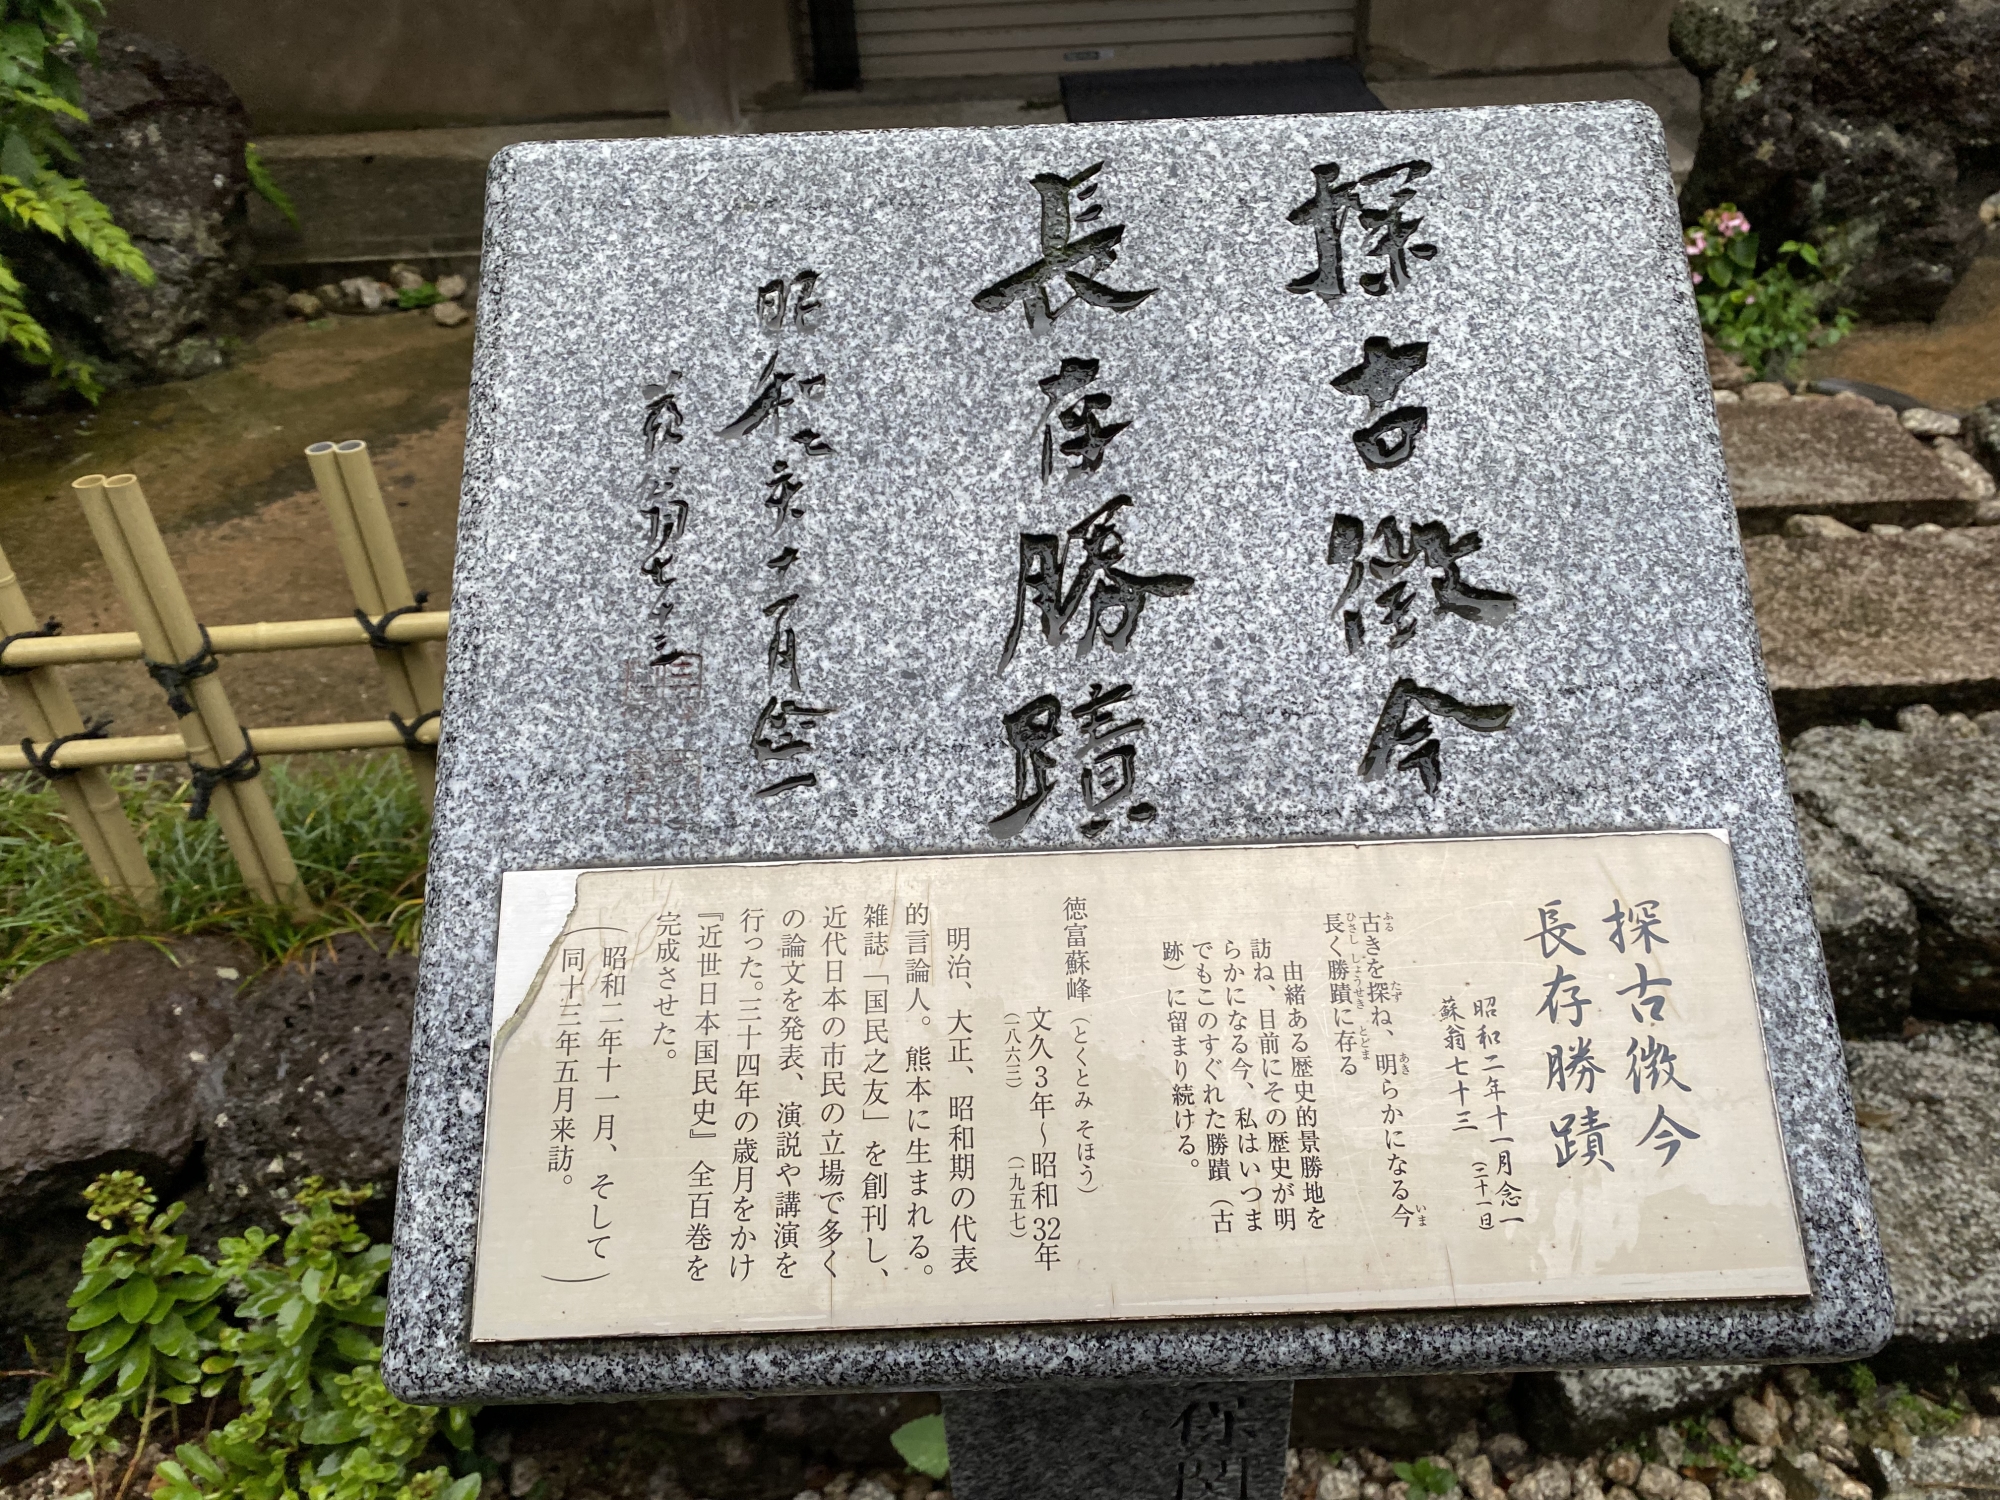 探古徴今
長存勝蹟
昭和二年十一月念一
蘇翁七十三
探古徴今
長存勝蹟
昭和二年十一月念一
(二十一日)
蘇翁七十三
古きを探ね、明らかになる今
ふる たず あき いま
長く勝蹟に存る
ひさし しょうせき とどま
由緒ある歴史的景勝地を
訪ね、目前にその歴史が明
らかになる今、私はいつま
でもこのすぐれた勝蹟(古
跡)に留まり続ける。
徳富蘇峰(とくとみ そほう)
文久3年~昭和32年
(一八六三) (一九五七)
明治、大正、昭和期の代表
的言論人。熊本に生まれる。
雑誌「国民之友」を創刊し、
近代日本の市民の立場で多く
の論文を発表、演説や講演を
行った。三十四年の歳月をかけ
『近世日本国民史』全百巻を
完成させた。
(昭和二年十一月、そして
同十三年五月来訪。)